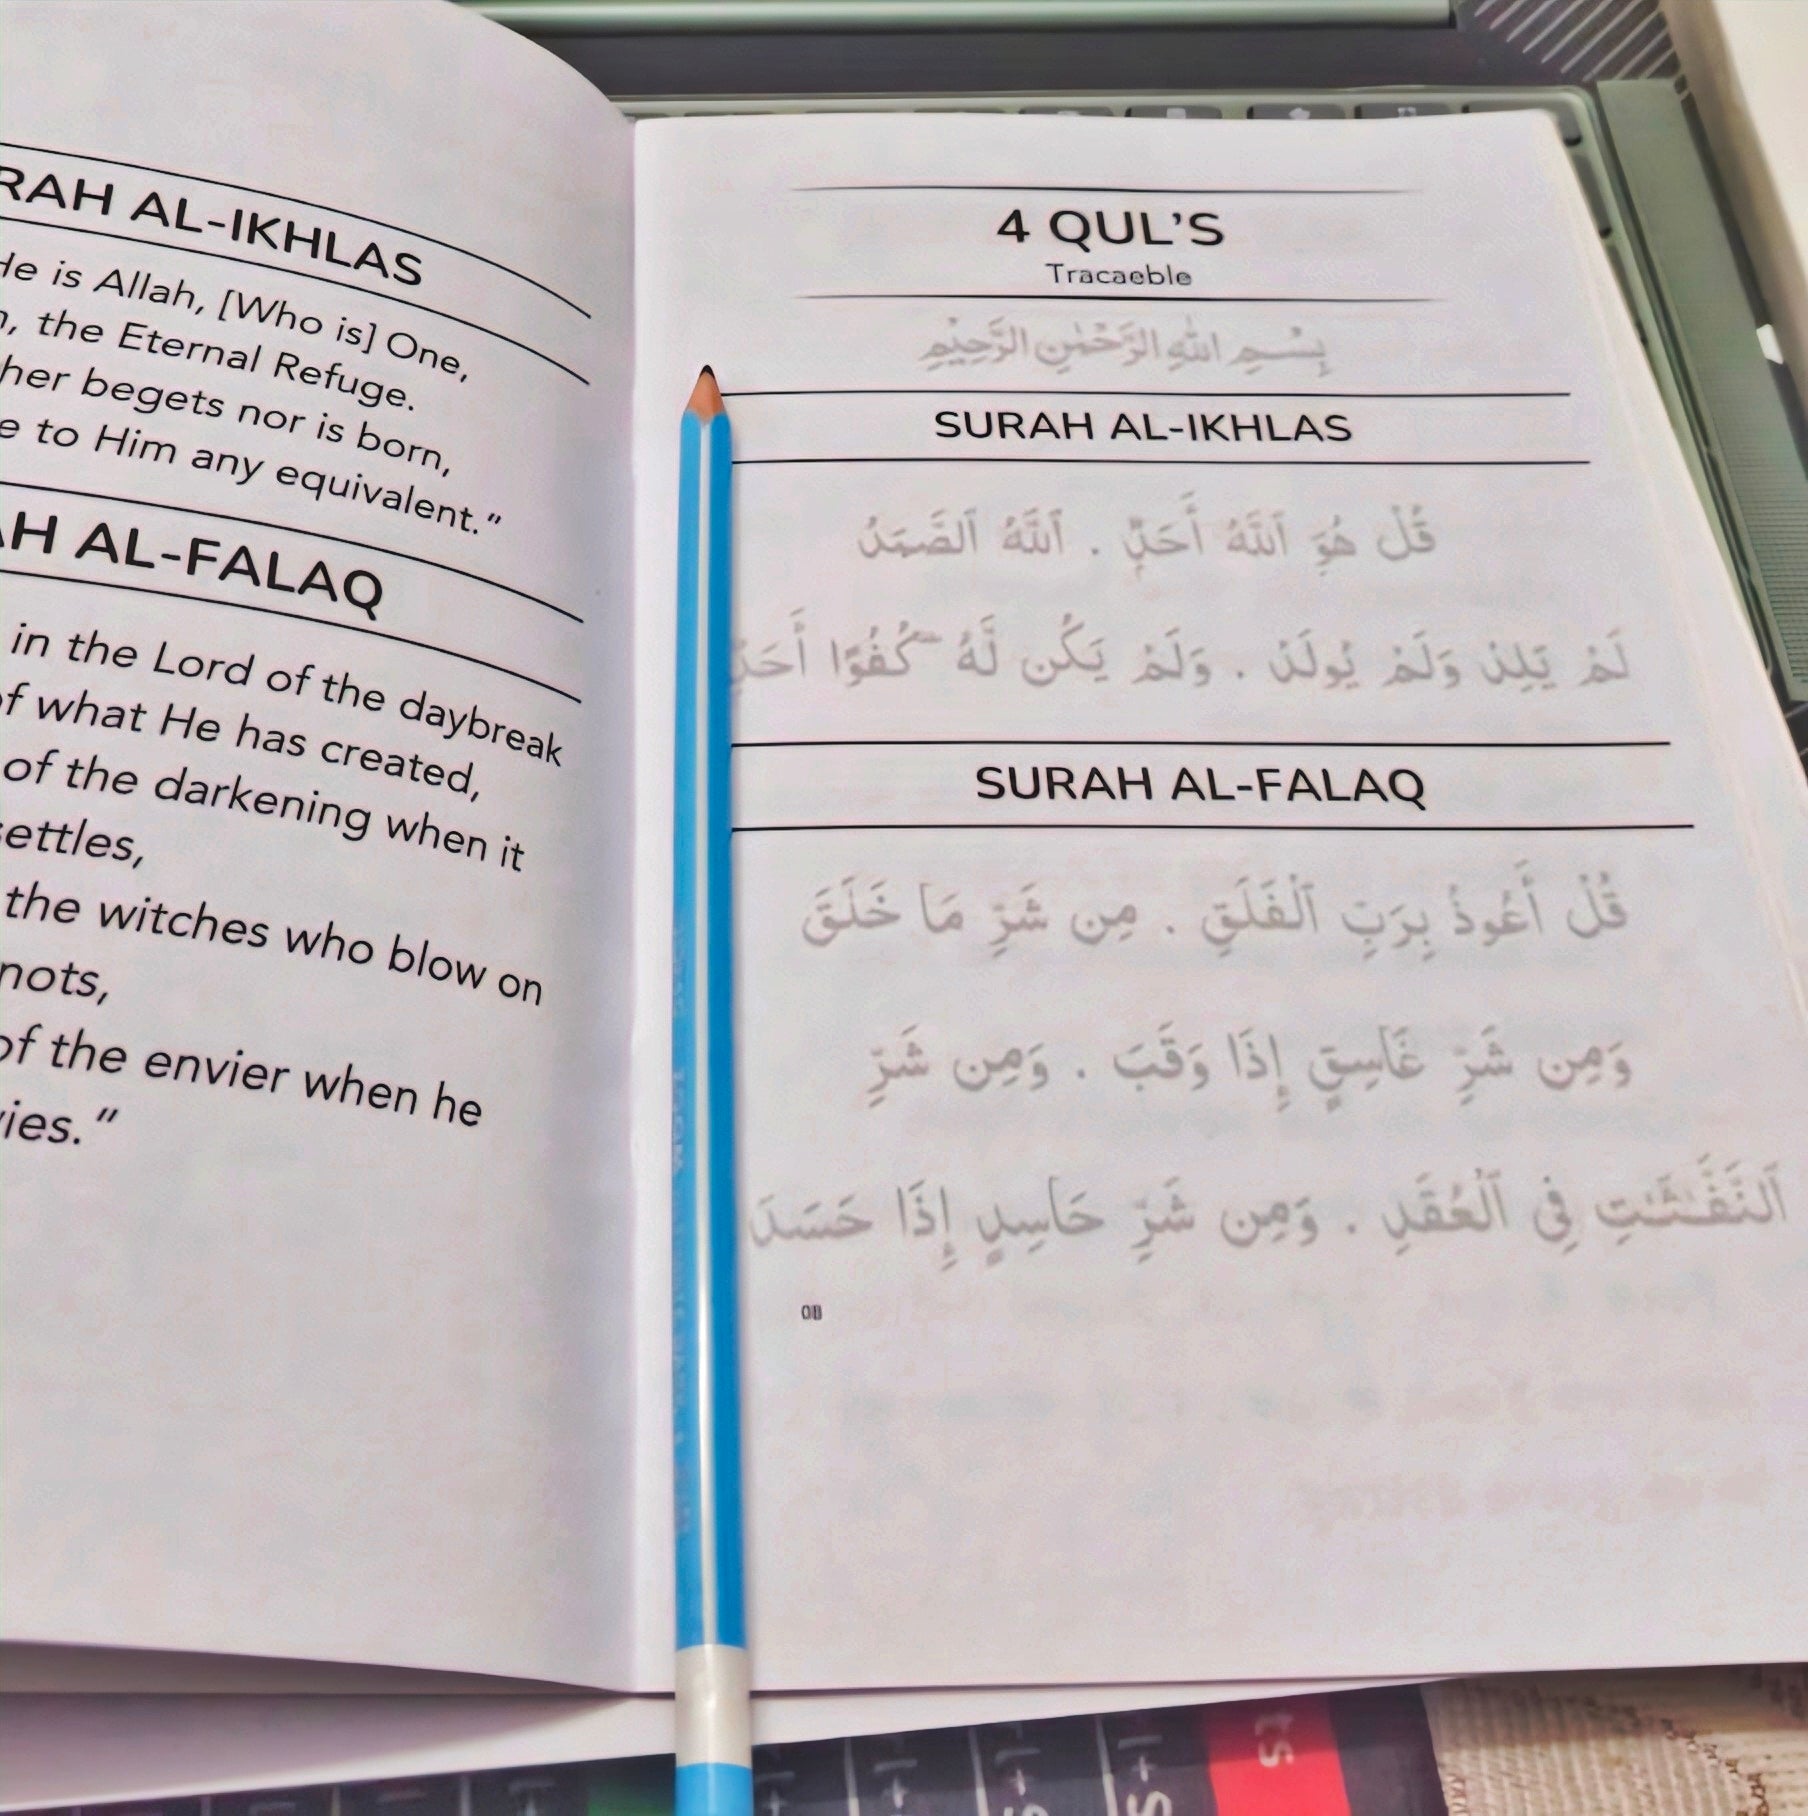 RAH AL-IKHLAS
He is Allah, [Who is] One,
the Eternal Refuge.
her begets nor is born,
e to Him any equivalent."
AH AL-FALAQ
in the Lord of the daybreak
of what He has created,
of the darkening when it
settles,
the witches who blow on
nots,
of the envier when he
vies."
4 QUL'S
Tracaeble
بِسْمِ اللهِ الرَّحْمٰنِ الرَّحِيْمِ
SURAH AL-IKHLAS
قُلْ هُوَ ٱللَّهُ أَحَدٌ . ٱللَّهُ ٱلصَّمَدُ
لَمْ يَلِدْ وَلَمْ يُولَدْ . وَلَمْ يَكُن لَّهُۥ كُفُوًا أَحَدٌ
SURAH AL-FALAQ
قُلْ أَعُوذُ بِرَبِّ ٱلْفَلَقِ . مِن شَرِّ مَا خَلَقَ
وَمِن شَرِّ غَاسِقٍ إِذَا وَقَبَ . وَمِن شَرِّ
ٱلنَّفَّـٰثَـٰتِ فِى ٱلْعُقَدِ . وَمِن شَرِّ حَاسِدٍ إِذَا حَسَدَ
08
ts